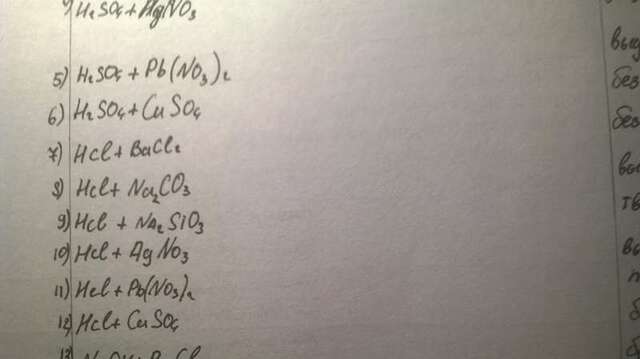 H₂SO₄ + AgNO₃
5) H₂SO₄ + Pb(NO₃)₂
6) H₂SO₄ + CuSO₄
7) HCl + BaCl₂
8) HCl + Na₂CO₃
9) HCl + Na₂SiO₃
10) HCl + AgNO₃
11) HCl + Pb(NO₃)₂
12) HCl + CuSO₄
без
без